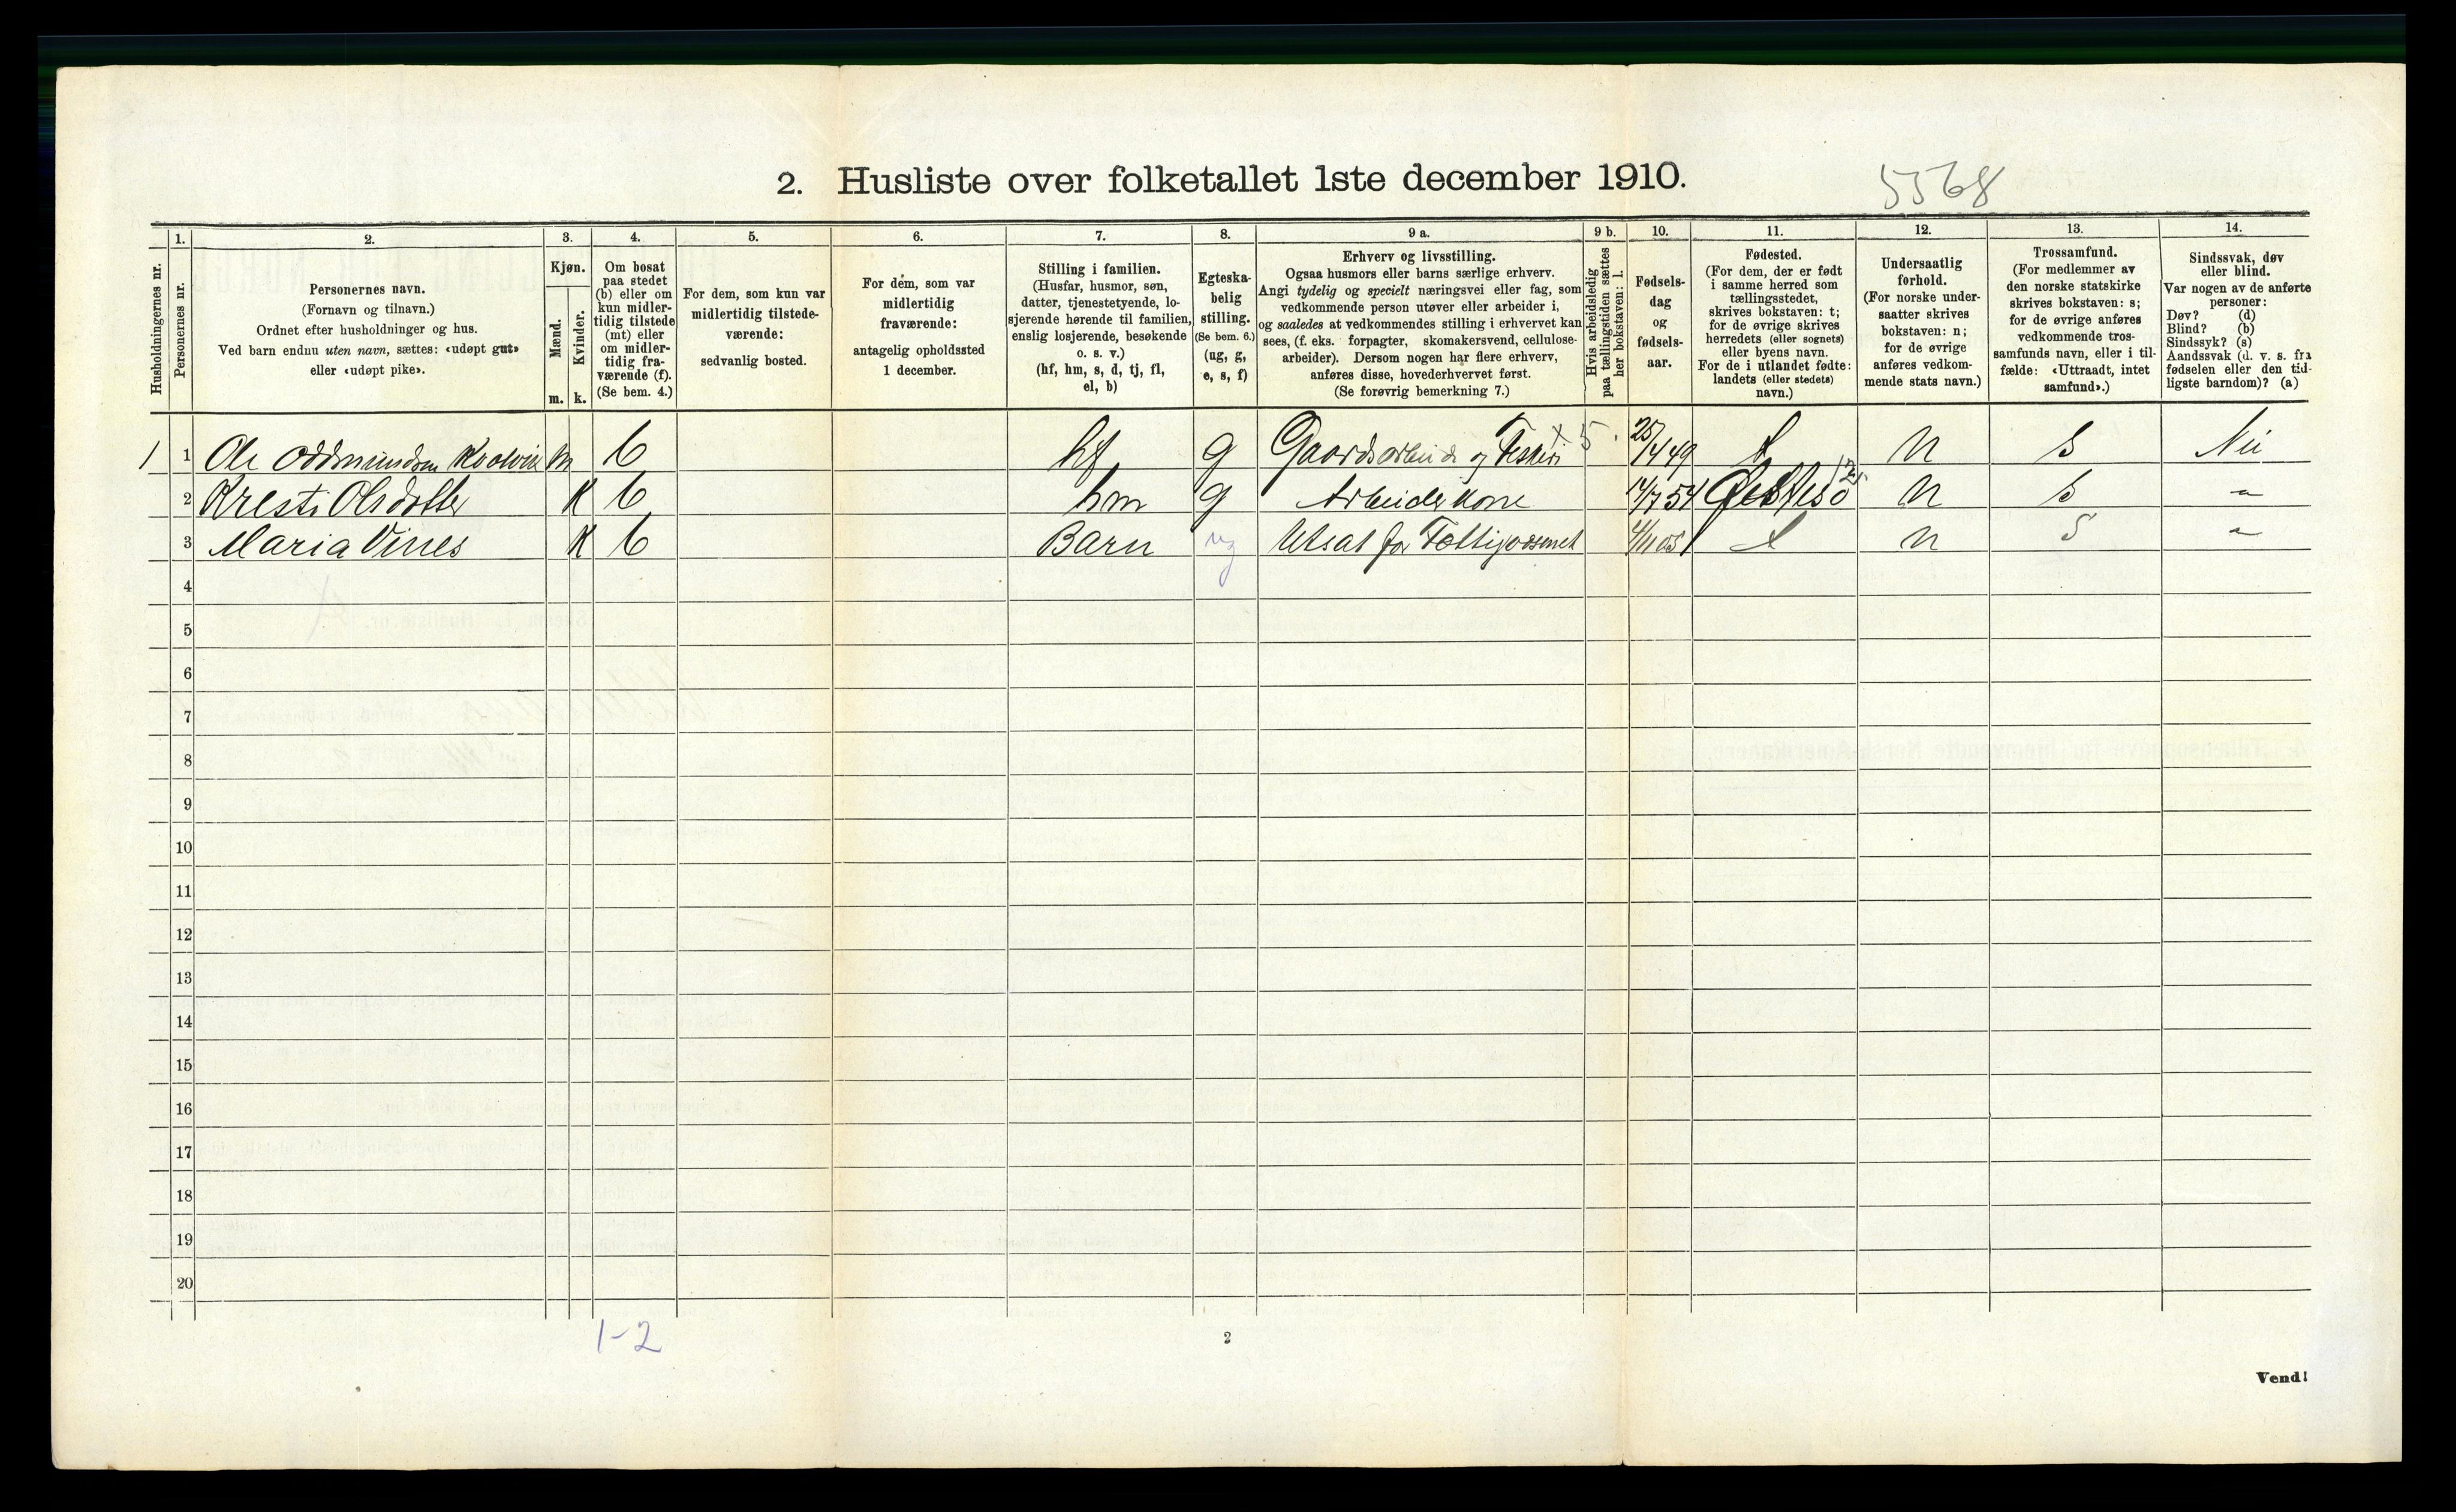 2. Husliste over folketallet 1ste december 1910.
5568
Husholdningernes nr.
1.
Personernes nr.
2.
Personernes navn.
(Fornavn og tilnavn.)
Ordnet efter husholdninger og hus.
Ved barn endnu uten navn, sættes: «udøpt gut»
eller «udøpt pike».
3.
Kjøn.
Mænd.
Kvinder.
m. k.
4.
Om bosat
paa stedet
(b) eller om
kun midler-
tidig tilstede
(mt) eller
om midler-
tidig fra-
værende (f).
(Se bem. 4.)
5.
For dem, som kun var
midlertidig tilstede-
værende:
sedvanlig bosted.
6.
For dem, som var
midlertidig
fraværende:
antagelig opholdssted
1 december.
7.
Stilling i familien.
(Husfar, husmor, søn,
datter, tjenestetyende, lo-
sjerende hørende til familien,
enslig losjerende, besøkende
o. s. v.)
(hf, hm, s, d, tj, fl,
el, b)
8.
Egteska-
belig
stilling.
(Se bem. 6.)
(ug, g,
e, s, f)
9 a.
Erhverv og livsstilling.
Ogsaa husmors eller barns særlige erhverv.
Angi tydelig og specielt næringsvei eller fag, som
vedkommende person utøver eller arbeider i,
og saaledes at vedkommendes stilling i erhvervet kan
sees, (f. eks. forpagter, skomakersvend, cellulose-
arbeider). Dersom nogen har flere erhverv,
anføres disse, hovederhvervet først.
(Se forøvrig bemerkning 7.)
9 b.
Hvis arbeidsledig
paa tællingstiden sættes
her bokstaven: l.
10.
Fødsels-
dag
og
fødsels-
aar.
11.
Fødested.
(For dem, der er født
i samme herred som
tællingsstedet,
skrives bokstaven: t;
for de øvrige skrives
herredets (eller sognets)
eller byens navn.
For de i utlandet fødte:
landets (eller stedets)
navn.)
12.
Undersaatlig
forhold.
(For norske under-
saatter skrives
bokstaven: n;
for de øvrige
anføres vedkom-
mende stats navn.)
13.
Trossamfund.
(For medlemmer av
den norske statskirke
skrives bokstaven: s;
for de øvrige anføres
vedkommende tros-
samfunds navn, eller i til-
fælde: «Uttraadt, intet
samfund».)
14.
Sindssvak, døv
eller blind.
Var nogen av de anførte
personer:
Døv? (d)
Blind? (b)
Sindssyk? (s)
Aandssvak (d. v. s. fra
fødselen eller den tid-
ligste barndom)? (a)
1 1 Ole Oddmundsen m b hf g Gaardsarbeide og Fiskeri x 5. 25/4 49 t n s
2 Kresti Olsdatter K b hm g Arbeiderkone 14/7 54 n s "
3 Maria Vines K b Barn ug Utsat for Fattigvæsenet 4/11 05 t n s "
4
5
6
7
8
9
10
11
12
13
14
15
16
17
18
19
20
1-2
2
Vend!